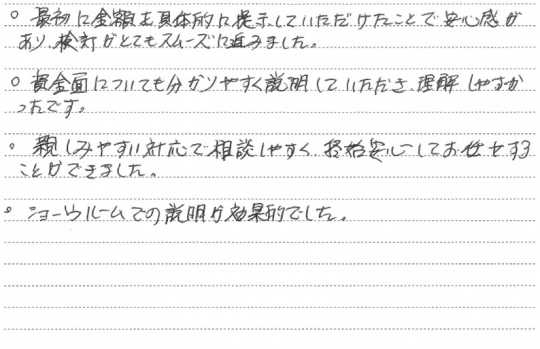 ○ 最初に金額を具体的に提示していただけたことで安心感が
あり、検討がとてもスムーズに進みました。
○ 資金面についても分かりやすく説明していただき、理解しやすか
ったです。
○ 親しみやすい対応で相談しやすく、終始安心してお任せする
ことができました。
○ ショールームでの説明が効果的でした。